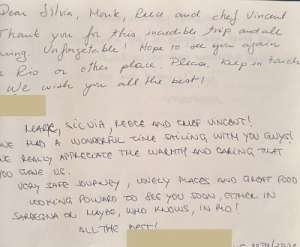 Dear Silvia, Mark, Reece and chef Vincent
Thank you for this incredible trip and all
Unforgetable! Hope to see you again
Rio or other place. Please, keep in touch
We wish you all the best!
MARK, SILVIA, REECE AND CHEF VINCENT!
WE HAD A WONDERFUL TIME SAILING WITH YOU GUYS!
WE REALLY APPRECIATE THE WARMTH AND CARING THAT
YOU GAVE US.
VERY SAFE JOURNEY, LOVELY PLACES AND GREAT FOOD
LOOKING FOWARD TO SEE YOU SOON, EITHER IN
SARDEGNA OR MAYBE, WHO KNOWS, IN RIO!
ALL THE BEST!